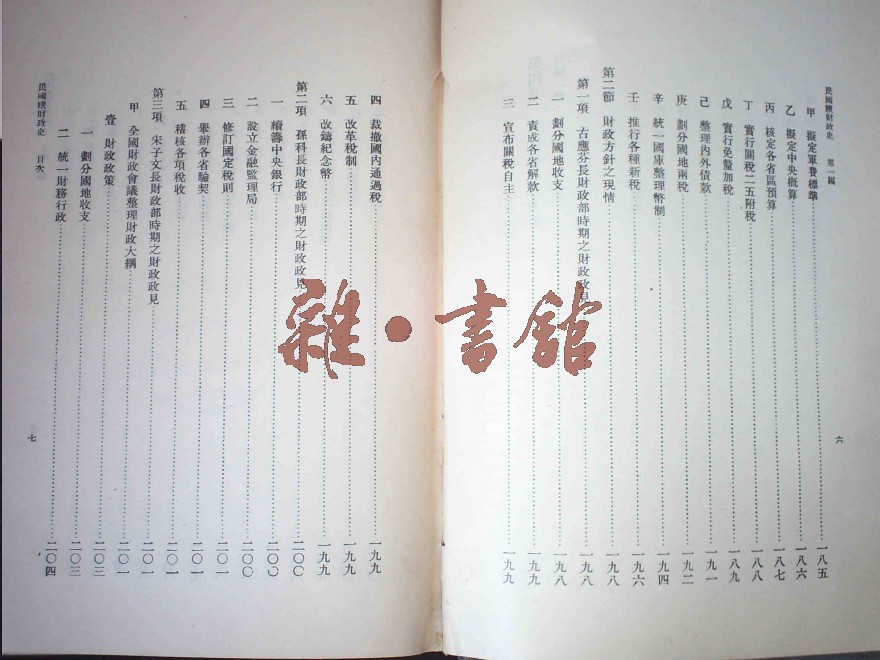 民國續財政史 第一編
甲 擬定軍費標準 一八五
乙 擬定中央概算 一八六
丙 核定各省區預算 一八七
丁 實行關稅二五附稅 一八八
戊 實行免釐加稅 一八九
己 整理內外債款 一九一
庚 劃分國地兩稅 一九二
辛 統一國庫整理幣制 一九四
壬 推行各種新稅 一九六
第二節 財政方針之現情 一九八
第一項 古應芬長財政部時期之財政政見 一九八
一 劃分國地收支 一九八
二 責成各省解款 一九九
三 宣布關稅自主 一九九
六
四 裁撤國內通過稅 一九九
五 改革稅制 一九九
六 改鑄紀念幣 一九九
第二項 孫科長財政部時期之財政政見 二〇〇
一 續籌中央銀行 二〇〇
二 設立金融監理局 二〇〇
三 修訂國定稅則 二〇一
四 舉辦各省驗契 二〇一
五 稽核各項稅收 二〇一
第三項 宋子文長財政部時期之財政政見 二〇一
甲 全國財政會議整理財政大綱 二〇一
壹 財政政策 二〇三
一 劃分國地收支 二〇三
二 統一財務行政 二〇四
民國續財政史 目次
七
雜·書館